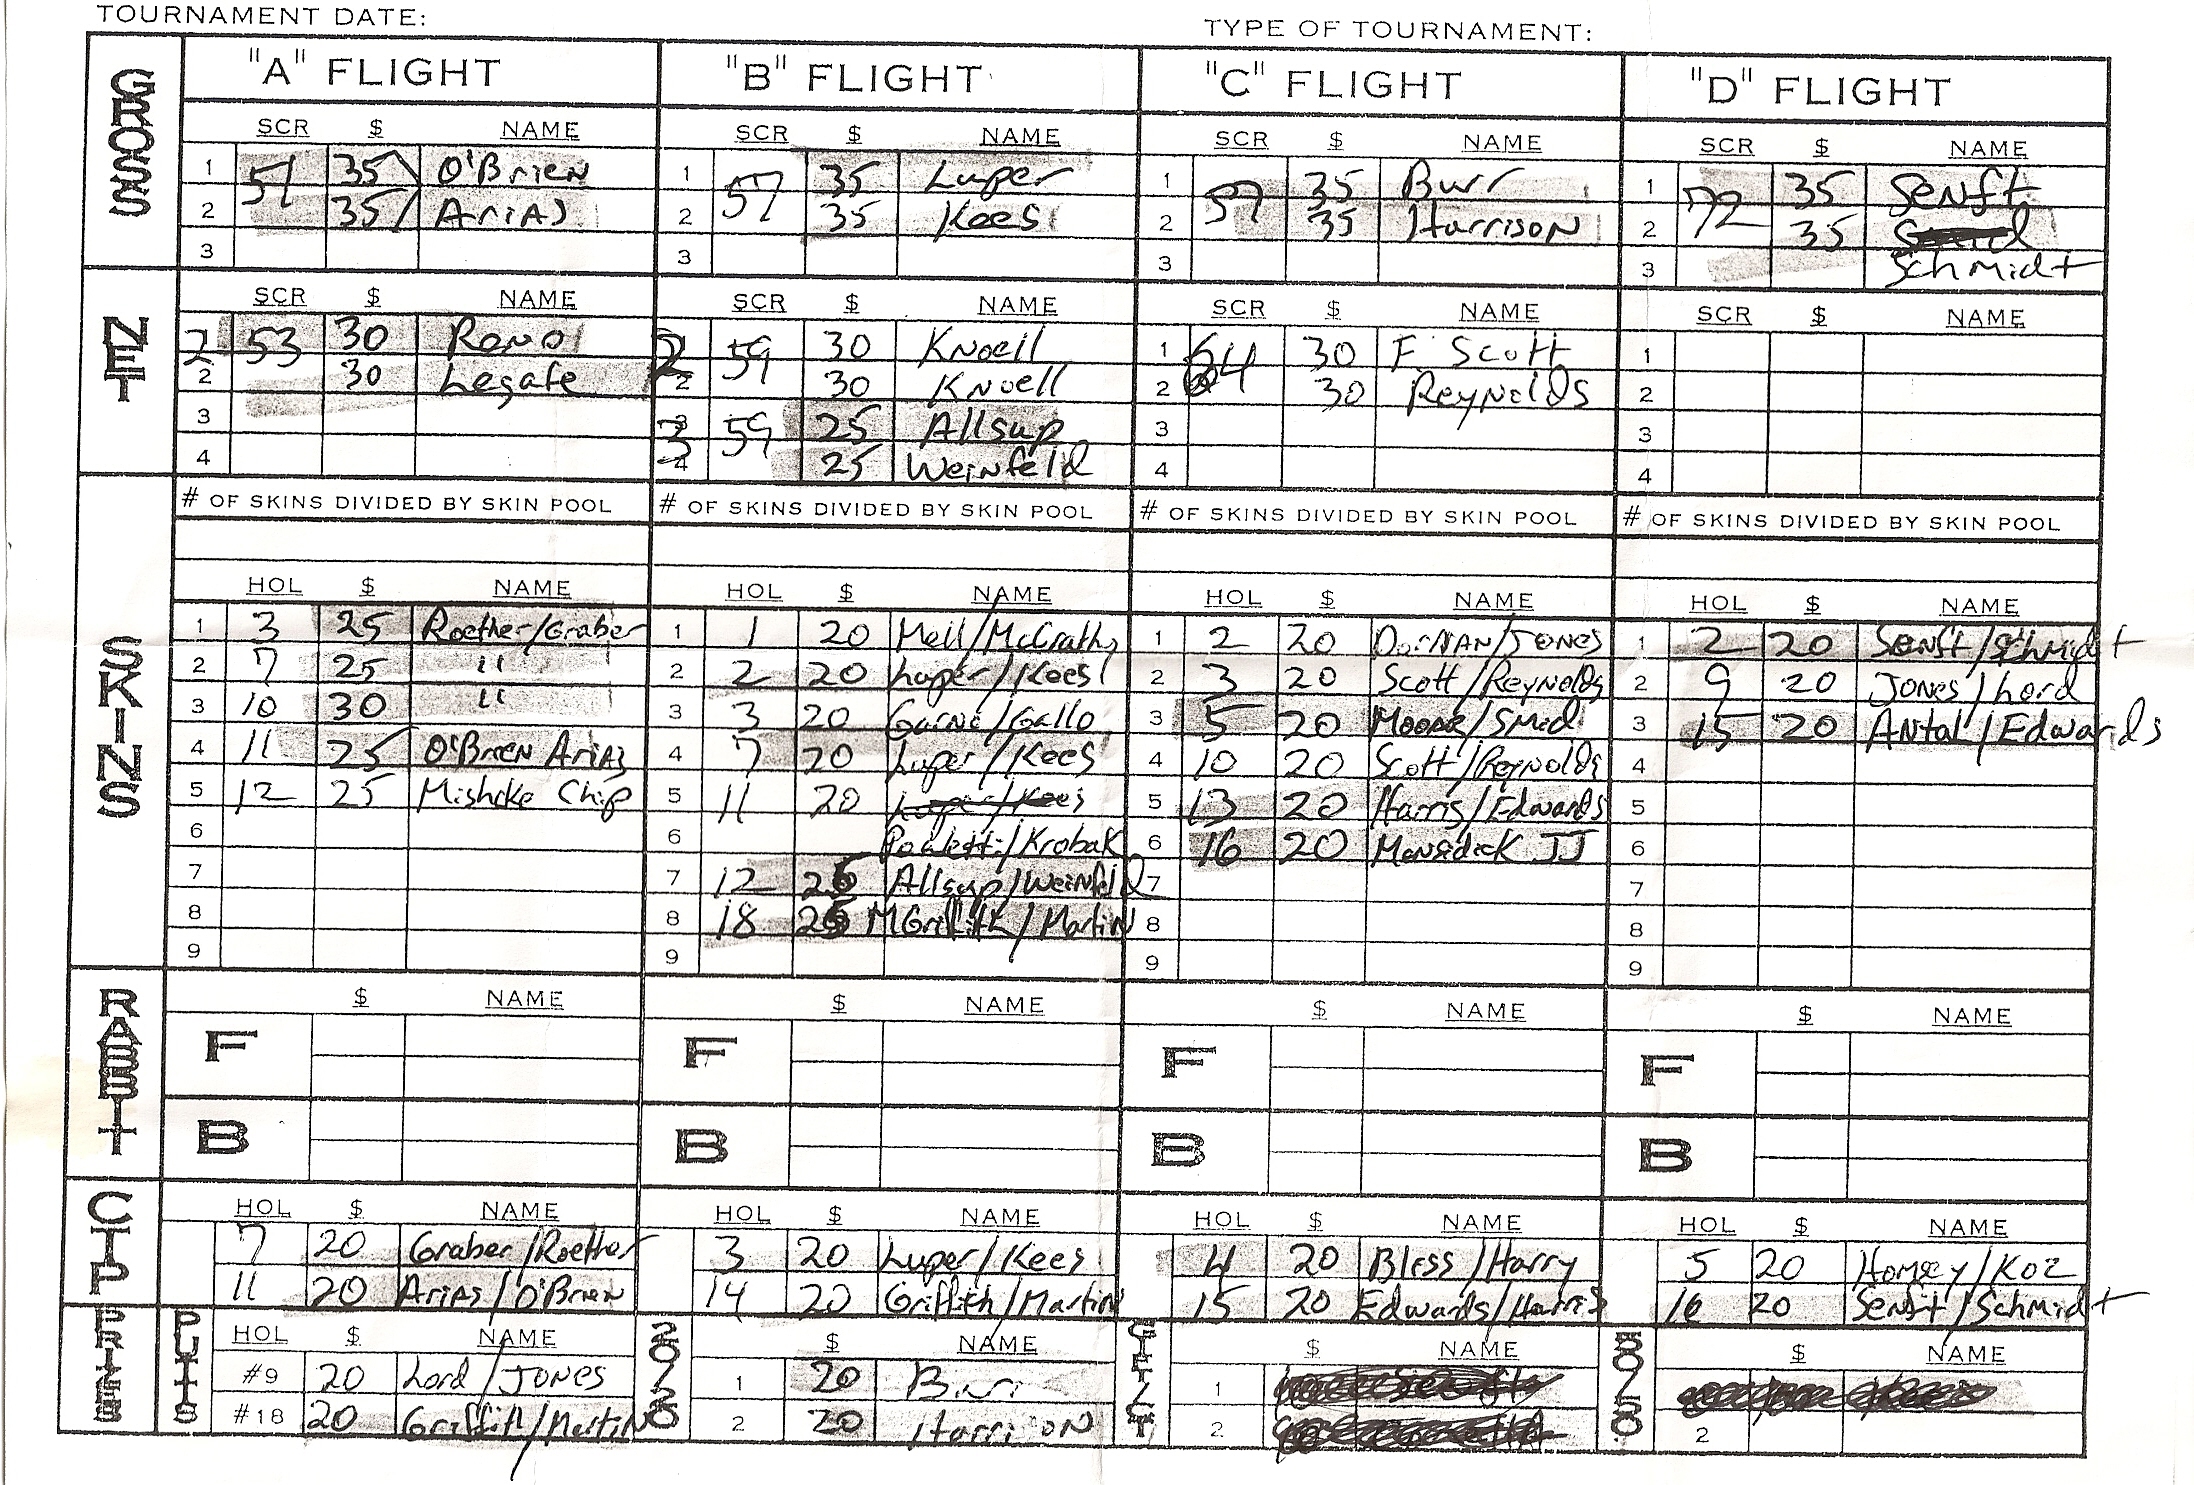 TOURNAMENT DATE: TYPE OF TOURNAMENT:
GROSS
"A" FLIGHT "B" FLIGHT "C" FLIGHT "D" FLIGHT
SCR $ NAME SCR $ NAME SCR $ NAME SCR $ NAME
1 51 35 O'Brien 1 57 35 Luper 1 57 35 Burr 1 72 35 Senft
2 35 Arias 2 35 Kees 2 35 Harrison 2 35
3 3 3 3 Schmidt
NET
SCR $ NAME SCR $ NAME SCR $ NAME SCR $ NAME
2 53 30 Reno 2 59 30 Knoell 1 64 30 F Scott 1
2 30 Legate 2 30 Knoell 2 30 Reynolds 2
3 3 59 25 Allsup 3 3
4 4 25 Weinfeld 4 4
# OF SKINS DIVIDED BY SKIN POOL # OF SKINS DIVIDED BY SKIN POOL # OF SKINS DIVIDED BY SKIN POOL # OF SKINS DIVIDED BY SKIN POOL
SKINS
HOL $ NAME HOL $ NAME HOL $ NAME HOL $ NAME
1 3 25 Roether/Graber 1 1 20 Mell/McGrath 1 2 20 Dornan/Jones 1 2 20 Senft/Schmidt
2 7 25 " 2 2 20 Luper/Kees 2 3 20 Scott/Reynolds 2 9 20 Jones/Lord
3 10 30 " 3 3 20 Garne/Gallo 3 5 20 Moore/Smid 3 15 20 Antal/Edwards
4 11 25 O'Brien Arias 4 7 20 Luper/Kees 4 10 20 Scott/Reynolds 4
5 12 25 Mishcke Chip 5 11 20 Luper/Kees 5 13 20 Harris/Edwards 5
6 6 /Krobak 6 16 20 JJ 6
7 7 12 25 Allsup/Weinfeld 7 7
8 8 18 25 MGriffith/Martin 8 8
9 9 9 9
RABBIT
$ NAME $ NAME $ NAME $ NAME
F F F F
B B B B
CTP
HOL $ NAME HOL $ NAME HOL $ NAME HOL $ NAME
7 20 Graber/Roether 3 20 Luper/Kees 4 20 Bless/Harry 5 20 /Koz
11 20 Arias/O'Brien 14 20 Griffith/Martin 15 20 Edwards/Harris 16 20 Senft/Schmidt
PRIZES
PUTTS HOL $ NAME $ NAME $ NAME 50/50 $ NAME
#9 20 Lord/Jones 1 20 Burr 1
#18 20 Griffith/Martin 2 20 Harrison 2 2